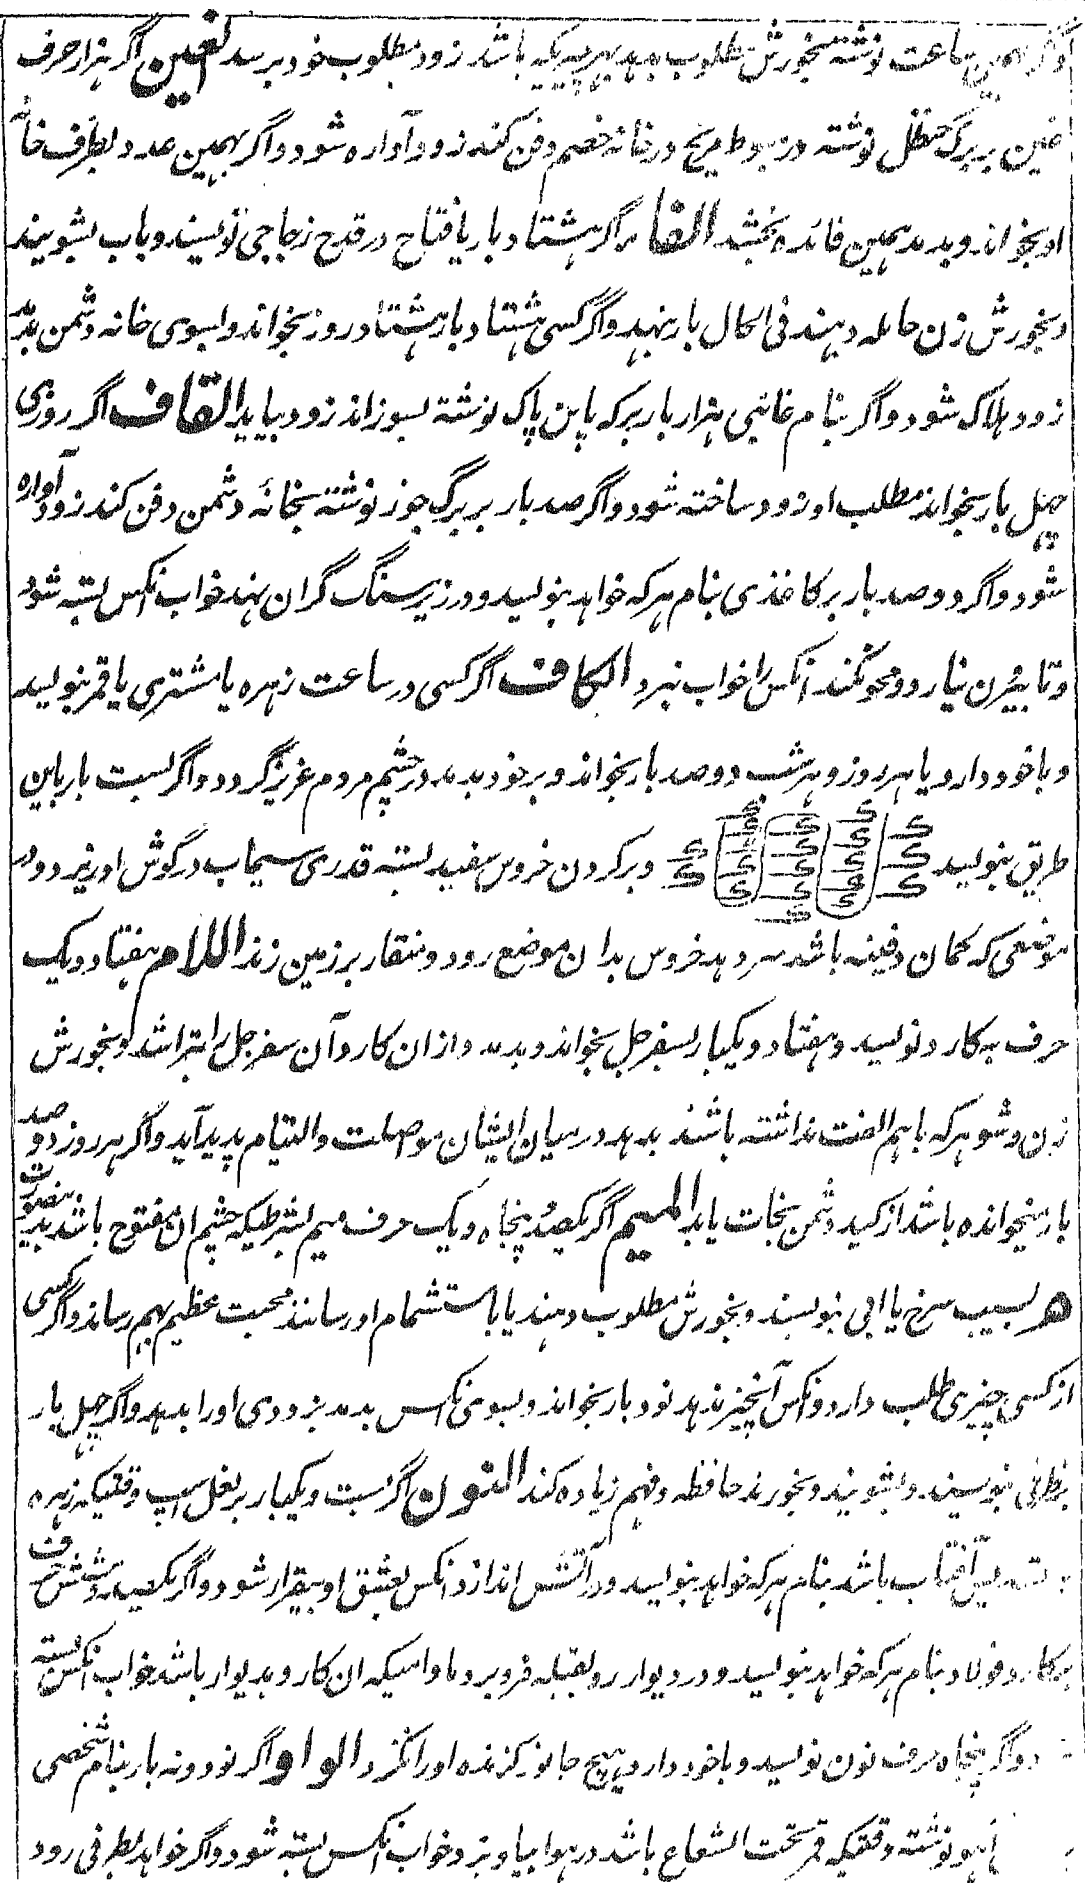 و اگر بهمین ساعت نوشته بخورش مطلوب بدهد بهر حیله که باشد زود بمطلوب خود برسد الغین اگر هزار حرف
غین بر برگ حنظل نوشته در هبوط مریخ در خانه خصم دفن کند زود آواره شود و اگر بهمین عدد بطرف خانه
او بخواند و بدمد همین فائده بخشد الفا اگر هشتاد بار یا فتاح در قدح زجاجی نویسند و بآب بشویند
و بخورش زن حامله دهند فی الحال بار بنهد و اگر کسی هشتاد بار هشتاد روز بخواند و بسوی خانه دشمن بدمد
زود هلاک شود و اگر بنام غائبی هزار بار برکه پاین پاک نوشته بسوزاند زود بیاید القاف اگر روزی
چهل بار بخواند مطلب او زود ساخته شود و اگر صد بار بر برگ جوز نوشته بخانهٔ دشمن دفن کند زود آواره
شود و اگر دو صد بار بر کاغذی بنام هرکه خواهد بنویسد و در زیر سنگ گران بنهد خواب انکس بسته شود
و تا بیرون نیارد و محو نکند انکس را خواب نبرد الکاف اگر کسی در ساعت زهره یا مشتری یا قمر بنویسد
و با خود دارد یا هر روز و هر شب دو صد بار بخواند و بر خود بدمد در چشم مردم عزیز گردد و اگر بست بار باین
طریق بنویسد و بر گردن خروس سفید بسته قدری سیماب در گوش او ریزد و در
موضعی که گمان دفینه باشد سر دهد خروس بدان موضع رود و منقار بر زمین زند اللام هفتاد و یک
حرف بر کارد نویسد و هفتاد و یکبار بسفرجل بخواند و بدمد و ازان کارد آن سفرجل را بتراشد و بخورش
زن و شوهر که باهم الفت نداشته باشند بدهد در میان ایشان مواصلت و التیام پدید آید و اگر هر روز دو صد
بار میخوانده باشد از کید دشمن نجات یابد المیم اگر یکصد و پنجاه و یک حرف میم بشرطیکه چشم ان مفتوح باشد بدینصورت
هر بسیب سرخ یا ابی بنویسند و بخورش مطلوب دهند یا باستشمام او رسانند محبت عظیم بهم رساند و اگر کسی
از کسی چیزی طلب دارد و انکس آنچیز ندهد نود بار بخواند و بسوی انکس بدمد بزودی اورا بدهد و اگر چهل بار
بظرفی بنویسند و بشویند و بخورند حافظه و فهم زیاده کند النون اگر بست و یکبار بر نعل اسپ وقتیکه زهره
آفتاب باشد بنام هرکه خواهد بنویسد و در آتش اندازد انکس بعشق او بیقرار شود و اگر یکصد و شش حرف
بر کارد فولاد بنام هرکه خواهد بنویسد و در دیوار رو بقبله فرو برد مادامیکه ان کارد بدیوار باشد خواب انکس بسته
شود و اگر پنجاه حرف نون نویسد و با خود دارد هیچ جانور گزنده اورا نگزد الواو اگر نود و نه بار بنام شخصی
آهو نوشته وقتیکه قمر تحت الشعاع باشد در هوا بیاویزد خواب انکس بسته شود و اگر خواهد بطرفی رود